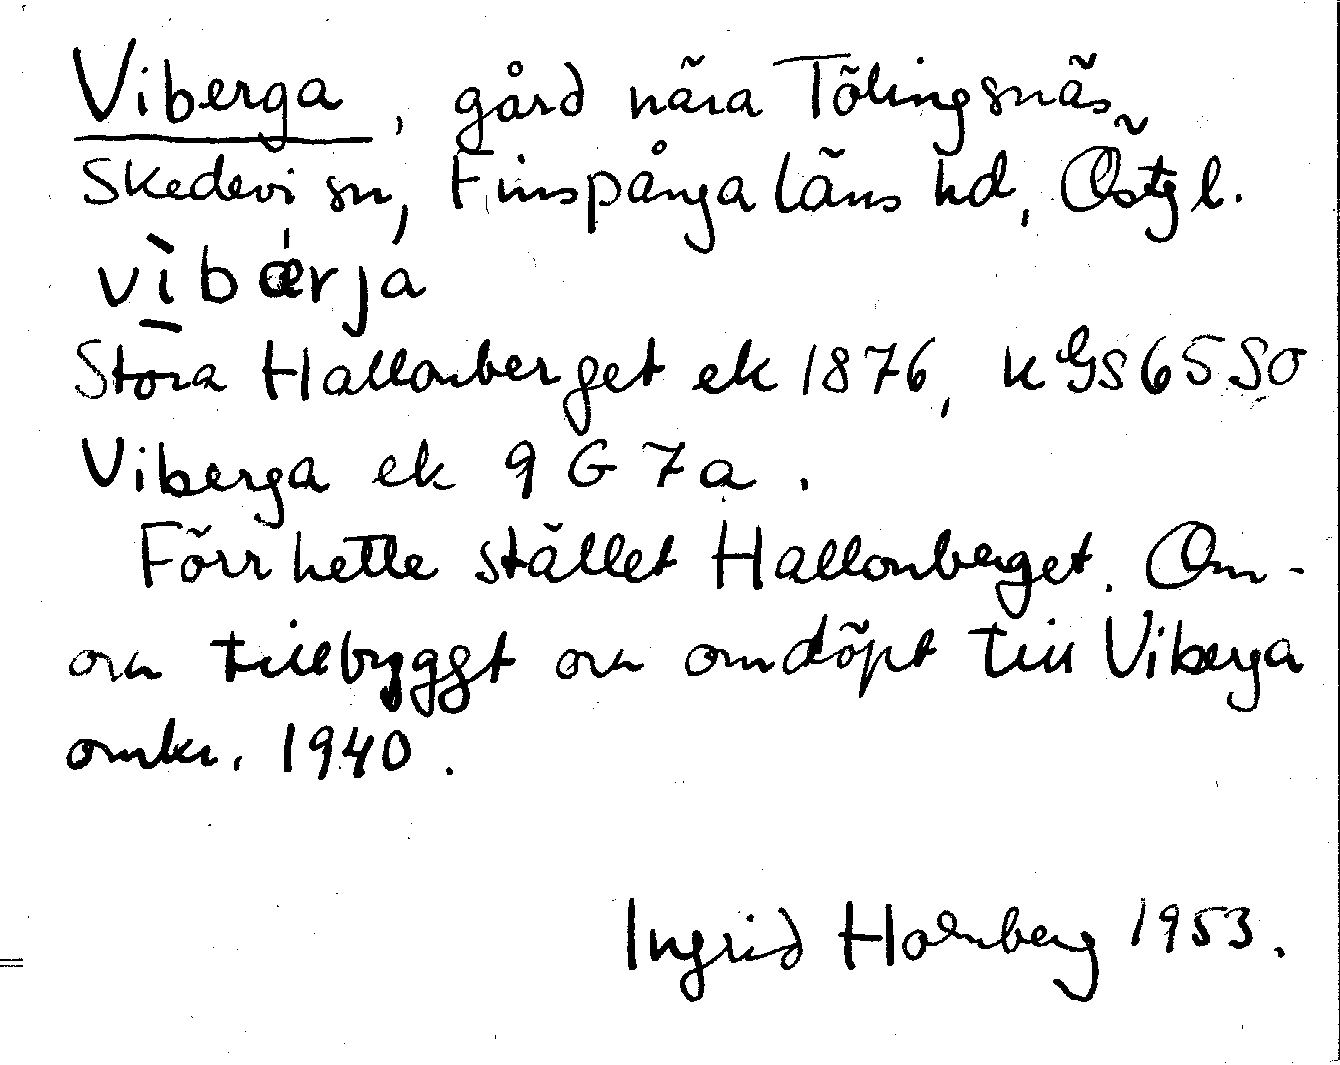 Viberga, gård nära Tölingsnäs,
Skedevi sn, Finspånga läns hd, Östgl.
vìbǽrja
Stora Hallonberget ek 1876, k GS 65 SO
Viberga ek 9 G 7 a.
Förr hette stället Hallonberget. Om-
och tillbyggt och omdöpt till Viberga
omkr. 1940.
Ingrid Holmberg 1953.